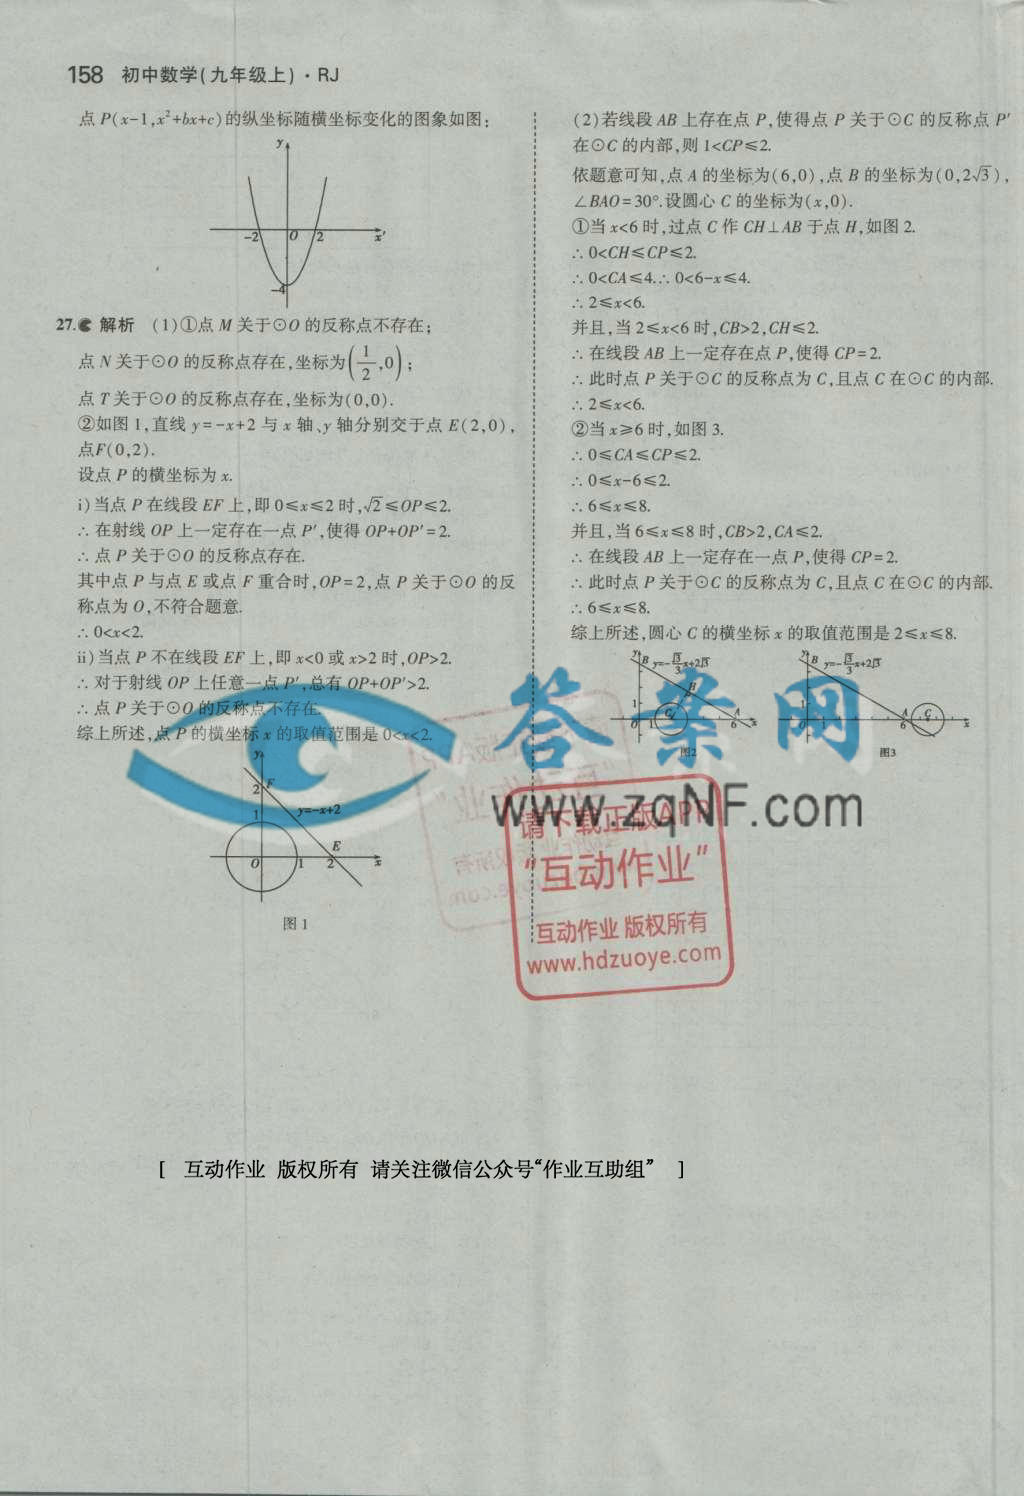 158 初中数学(九年级上)·RJ
点 P(x-1,x²+bx+c)的纵坐标随横坐标变化的图象如图:
y
-2 O 2 x'
-4
27. 解析 (1)①点 M 关于⊙O 的反称点不存在;
点 N 关于⊙O 的反称点存在,坐标为(1/2,0);
点 T 关于⊙O 的反称点存在,坐标为(0,0).
②如图 1,直线 y=-x+2 与 x 轴、y 轴分别交于点 E(2,0),
点F(0,2).
设点 P 的横坐标为 x.
i)当点 P 在线段 EF 上,即 0≤x≤2 时,√2≤OP≤2.
∴ 在射线 OP 上一定存在一点 P′,使得 OP+OP′=2.
∴ 点 P 关于⊙O 的反称点存在.
其中点 P 与点 E 或点 F 重合时,OP=2,点 P 关于⊙O 的反
称点为 O,不符合题意.
∴ 0<x<2.
ii)当点 P 不在线段 EF 上,即 x<0 或 x>2 时,OP>2.
∴ 对于射线 OP 上任意一点 P′,总有 OP+OP′>2.
∴ 点 P 关于⊙O 的反称点不存在.
综上所述,点 P 的横坐标 x 的取值范围是 0<x<2.
y
2 F
1 y=-x+2
E
O 1 2 x
图 1
(2)若线段 AB 上存在点 P,使得点 P 关于⊙C 的反称点 P′
在⊙C 的内部,则 1<CP≤2.
依题意可知,点 A 的坐标为(6,0),点 B 的坐标为(0,2√3),
∠BAO=30°.设圆心 C 的坐标为(x,0).
①当 x<6 时,过点 C 作 CH⊥AB 于点 H,如图 2.
∴ 0<CH≤CP≤2.
∴ 0<CA≤4.∴ 0<6-x≤4.
∴ 2≤x<6.
并且,当 2≤x<6 时,CB>2,CH≤2.
∴ 在线段 AB 上一定存在点 P,使得 CP=2.
∴ 此时点 P 关于⊙C 的反称点为 C,且点 C 在⊙C 的内部.
∴ 2≤x<6.
②当 x≥6 时,如图 3.
∴ 0≤CA≤CP≤2.
∴ 0≤x-6≤2.
∴ 6≤x≤8.
并且,当 6≤x≤8 时,CB>2,CA≤2.
∴ 在线段 AB 上一定存在一点 P,使得 CP=2.
∴ 此时点 P 关于⊙C 的反称点为 C,且点 C 在⊙C 的内部.
∴ 6≤x≤8.
综上所述,圆心 C 的横坐标 x 的取值范围是 2≤x≤8.
y B y=-√3/3x+2√3
H
1 C A
O 1 6 x
图2
y B y=-√3/3x+2√3
1 A C
O 1 6 x
图3
答案网
www.zqNF.com
请下载正版APP
“互动作业”
互动作业 版权所有
www.hdzuoye.com
[ 互动作业 版权所有 请关注微信公众号“作业互助组” ]